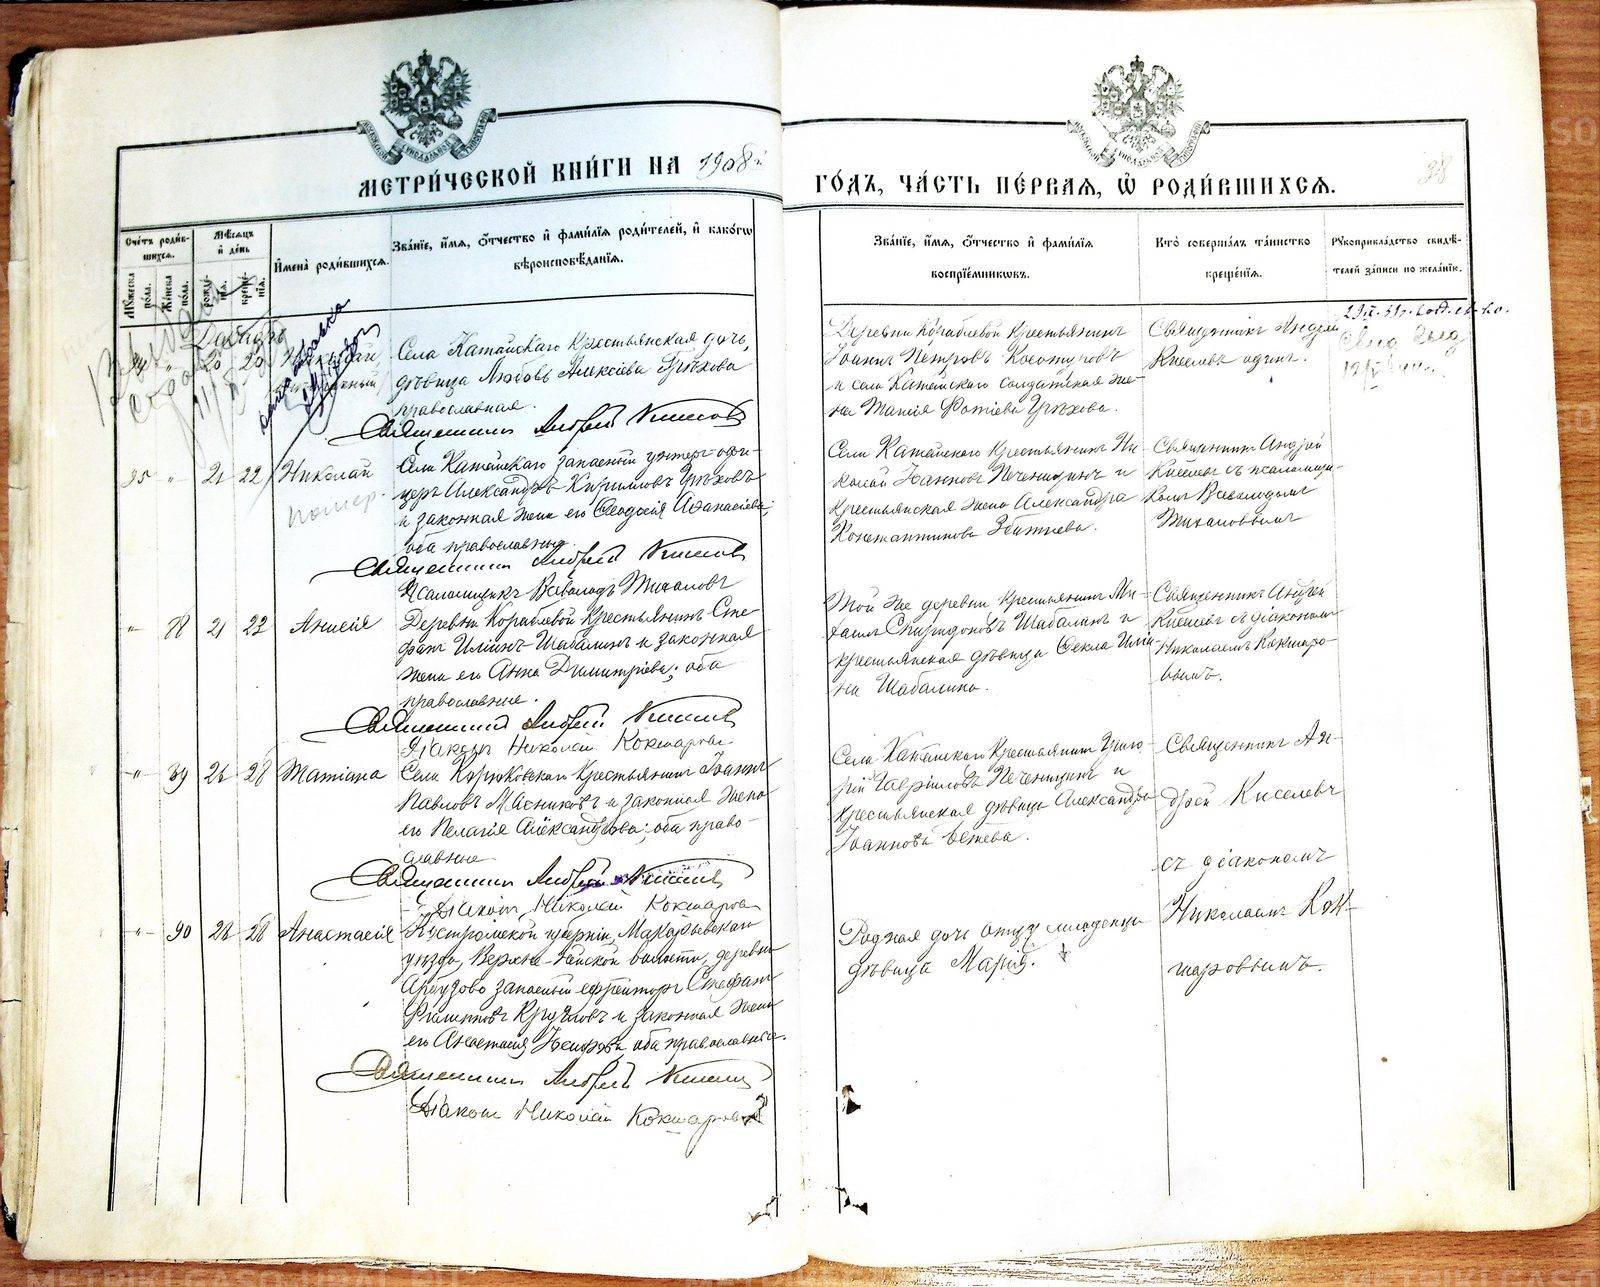 МЕТРИ́ЧЕСКОЙ КНИ́ГИ НА 1908й
ГО́ДЪ, ЧА́СТЬ ПЕ́РВАЯ, Ѡ҆ РОДИ́ВШИХСЯ.
38
Сче́тъ роди́в-
шихся.
Мѹжеска по́ла.
Же́нска по́ла.
Мѣ́сяцъ
и҆ де́нь
рожде́-
нїя.
креще́-
нїя.
И҆мена̀ роди́вшихся.
Зва́нїе, и҆́мя, ѻ҆́тчество и҆ фами́лїя роди́телей, и҆ како́гѡ
вѣроисповѣ́данїя.
Зва́нїе, и҆́мя, ѻ҆́тчество и҆ фами́лїя
воспрїе́мниковъ.
Кто̀ соверша́лъ та́инство
креще́нїя.
Рѹкоприкла́дство свидѣ́-
телей за́писи по жела́нїю.
Декабрь
20 20
Села Катайскаго крестьянская дочь,
дѣвица Любовь Алексіева Грѣхова
православная.
Священникъ Андрей Киселевъ
Деревни Кораблевой крестьянинъ
Іоаннъ Петровъ Косотуровъ
и села Катайскаго солдатская же-
на Таисія Фотіева Грѣхова.
Священникъ Андрей
Киселевъ одинъ.
95 " 21 22 Николай
помер.
Села Катайскаго запасный унтеръ-офи-
церъ Александръ Кирилловъ Грѣховъ
и законная жена его Ѳеодосія Аѳанасіева;
оба православные.
Священникъ Андрей Киселевъ
Псаломщикъ Всеволодъ
Села Катайскаго крестьянинъ Ни-
колай Іоанновъ Печенкинъ и
крестьянская жена Александра
Константинова
Священникъ Андрей
Киселевъ съ псаломщи-
комъ Всеволодомъ
" 88 21 22 Анисія
Деревни Кораблевой крестьянинъ Сте-
фанъ Иліинъ Шабалинъ и законная
жена его Анна Димитріева; оба
православные.
Священникъ Андрей Киселевъ
Діаконъ Николай Кокшаровъ
Той же деревни крестьянинъ Ми-
хаилъ Спиридоновъ Шабалинъ и
крестьянская дѣвица Ѳекла Иліи-
на Шабалина.
Священникъ Андрей
Киселевъ съ діакономъ
Николаемъ Кокшаро-
вымъ.
" 89 26 28 Татіана
Села Корюковскаго крестьянинъ Іоаннъ
Павловъ Мясниковъ и законная жена
его Пелагія Александрова; оба право-
славные
Священникъ Андрей Киселевъ
Діаконъ Николай Кокшаровъ
Села Катайскаго крестьянинъ Григо-
рій Гавриловъ Печенкинъ и
крестьянская дѣвица Александра
Іоаннова
Священникъ Ан-
дрей Киселевъ
съ діакономъ
Николаемъ Кок-
шаровымъ.
" 90 28 28 Анастасія
Костромской губерніи, Макарьевскаго
уѣзда, Верхне- волости, деревни
запасный ефрейторъ Стефанъ
Филипповъ Кругловъ и законная жена
его Анастасія оба православные.
Священникъ Андрей Киселевъ
Діаконъ Николай Кокшаровъ
Родная дочь отцу младенца
дѣвица Марія.